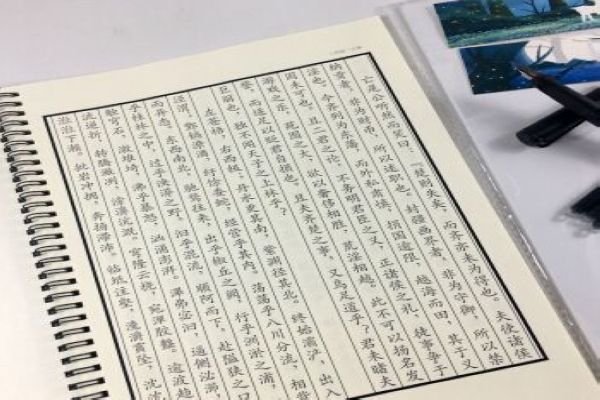 亡是公听然而笑曰：『楚则失矣，而齐亦未为得也。夫使诸侯
纳贡者，非为财币，所以述职也。封疆画界者，非为守御，所以禁
淫也。今齐列为东藩，而外私肃慎，捐国逾限，越海而田，其于义
固未可也。且二君之论，不务明君臣之义，正诸侯之礼，徒事争于
游戏之乐，苑囿之大，欲以奢侈相胜，荒淫相越。此不可以扬名发
誉，而适足以贬君自损也。且夫齐楚之事，又乌足道乎？君未睹夫
巨丽也，独不闻天子之上林乎？
左苍梧，右西极，丹水更其南，紫渊径其北。终始灞浐，出入
泾渭，酆镐潦潏，纡馀委蛇，经营乎其内。荡荡乎八川分流，相背
而异态。东西南北，驰骛往来，出乎椒丘之阙，行乎洲淤之浦，
乎桂林之中，过乎泱漭之野。汩乎混流，顺阿而下，赴隘狭之口
触穹石，激堆埼，沸乎暴怒，汹涌澎湃。滭弗宓汩，逼侧泌瀄，
流逆折，转腾潎洌，滂濞沆溉。穹隆云桡，宛潬胶盭。逾波趋
涖涖下濑。批岩冲拥，奔扬滞沛。临坻注壑，瀺灂霣坠，沈沈